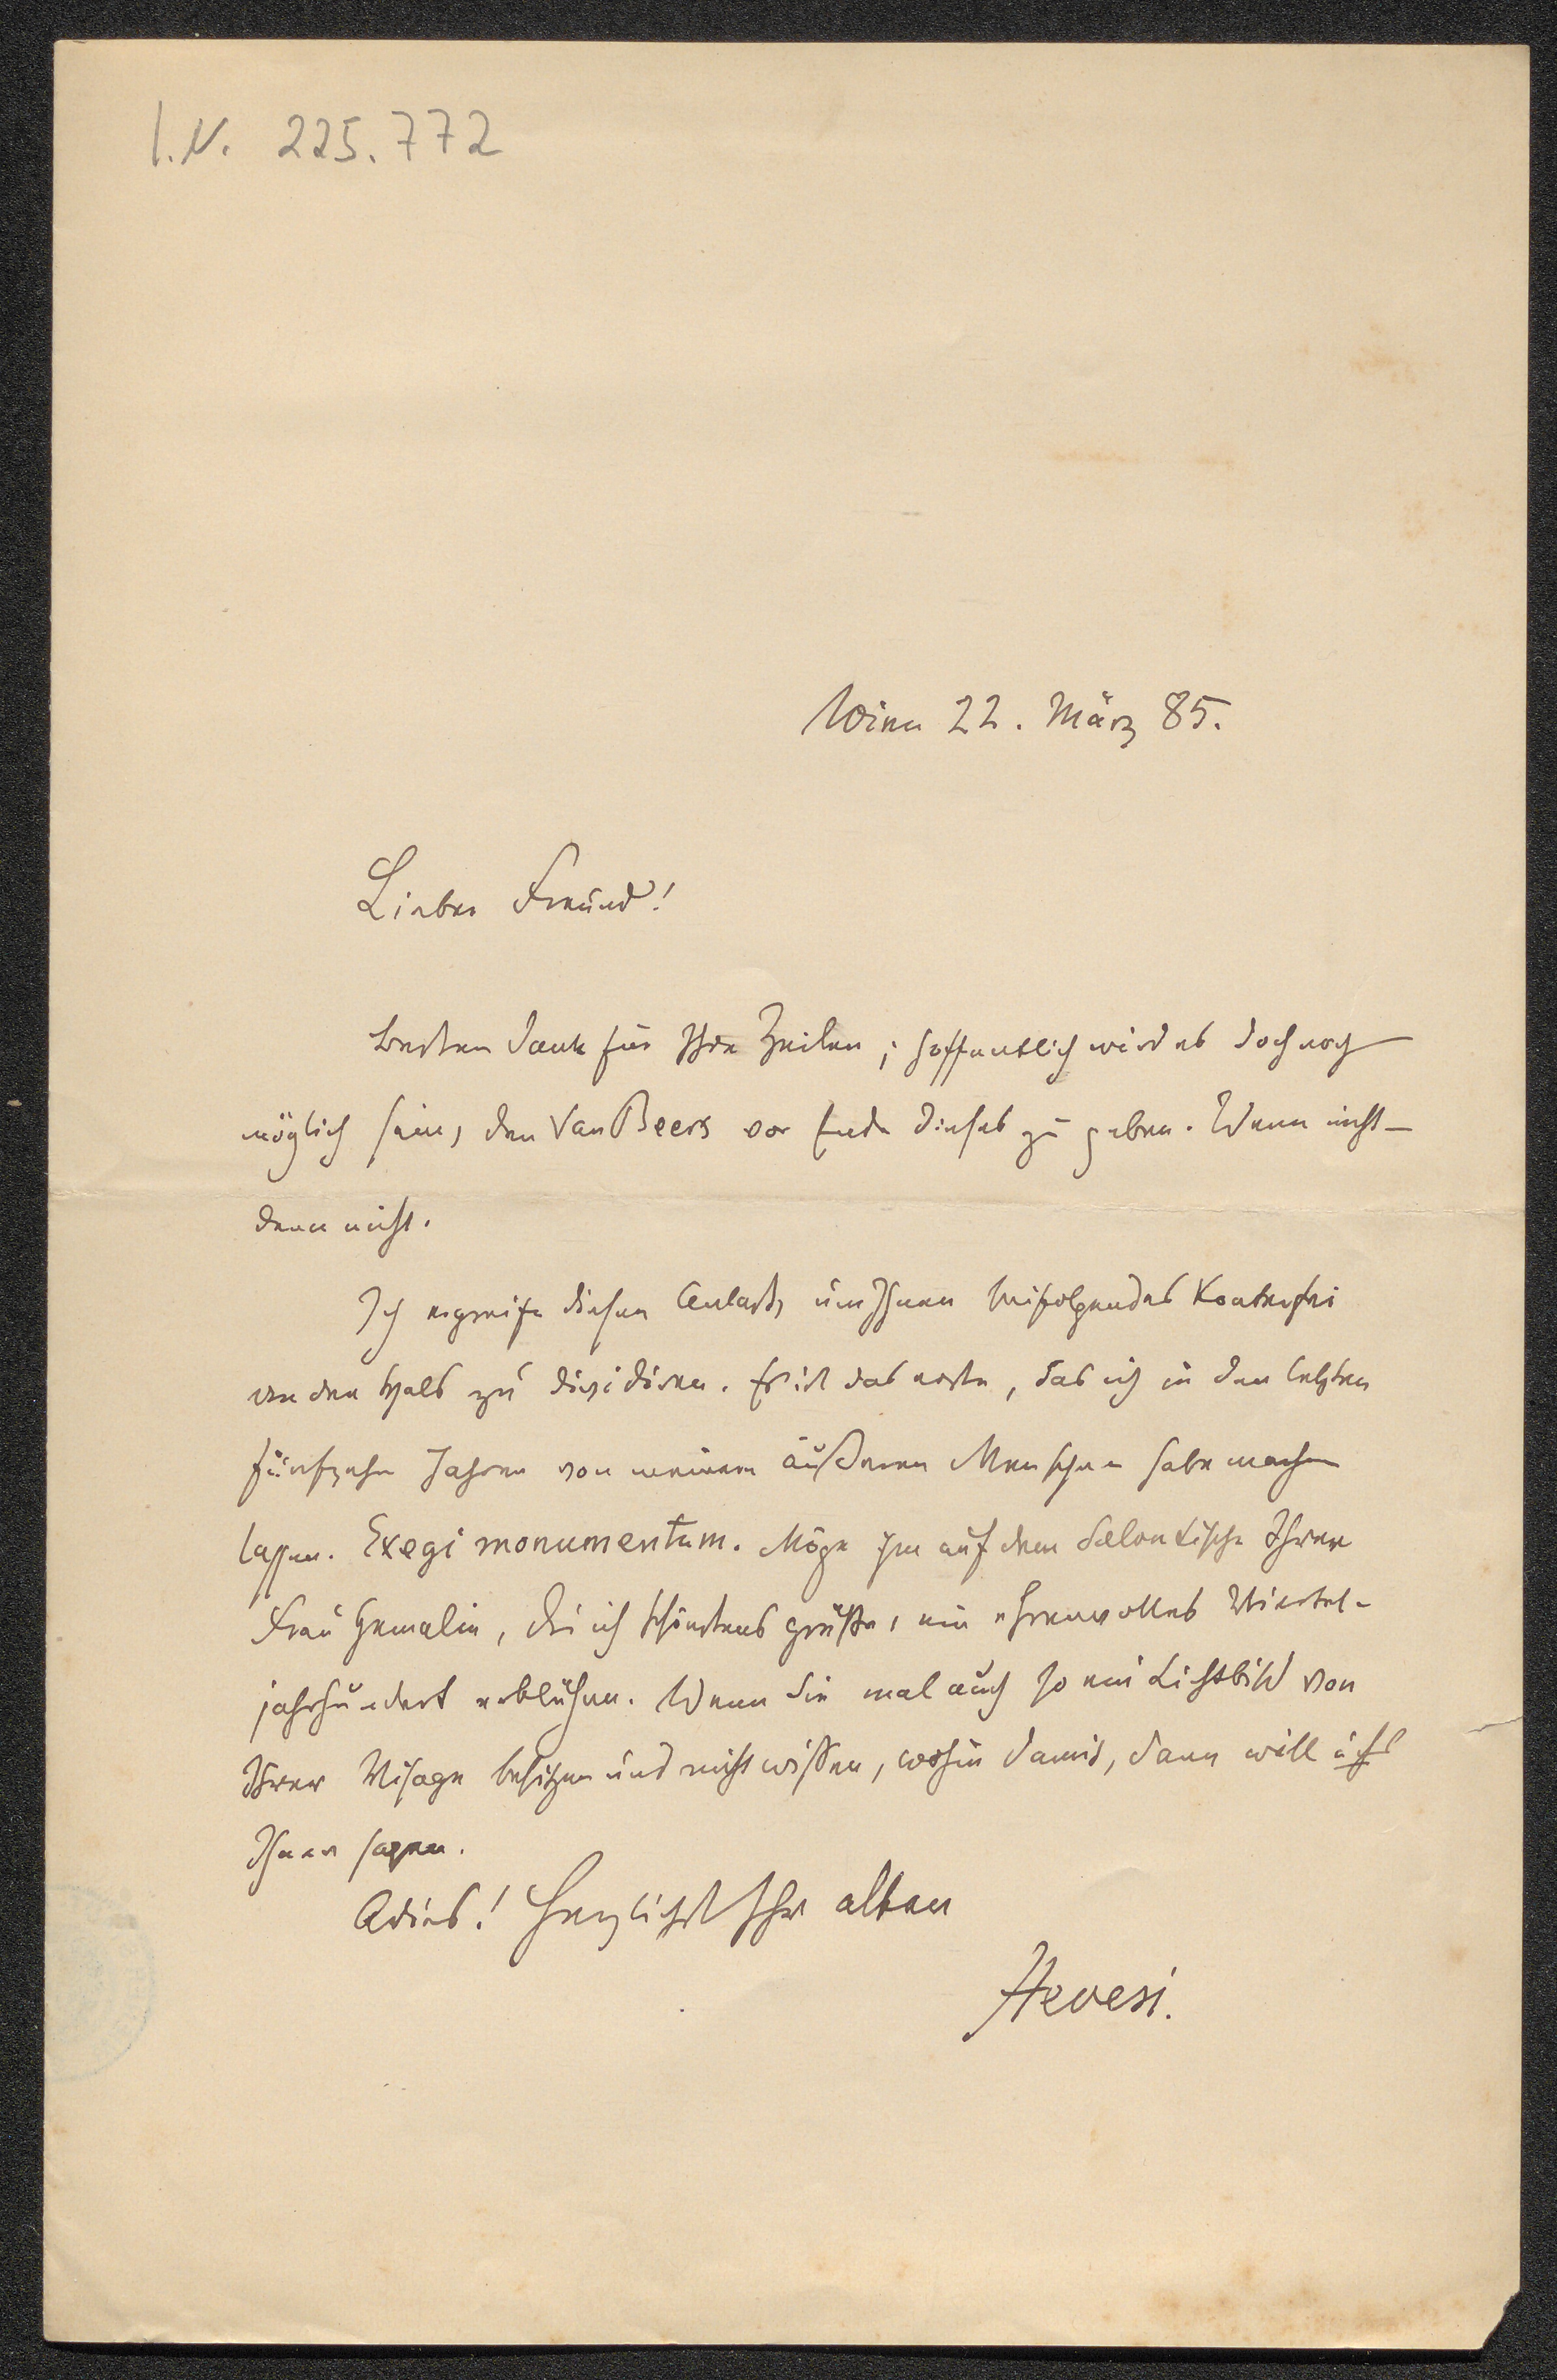 I.N. 225.772
Wien 22. März 85.
Lieber Freund!
Besten Dank für Ihre Zeilen; hoffentlich wird es doch noch
möglich sein, den Van Beers vor Ende dieses zu geben. Wenn nicht –
dann nicht.
Ich ergreife diesen Anlass, um Ihnen beifolgendes Konterfei
an den Hals zu dividiren. Es ist das erste, das ich in den letzten
fünfzehn Jahren von meinem äußeren Menschen habe machen
lassen. Exegi monumentum. Möge ihm auf dem Salontische Ihrer
Frau Gemalin, die ich schönstens grüße, ein ehrenvolles Viertel-
jahrhundert erblühen. Wenn Sie mal auch so ein Lichtbild von
Ihrer Visage besitzen und nicht wissen, wohin damit, dann will ichs
Ihnen sagen.
Adies! Herzlichst Ihr alter
Hevesi.